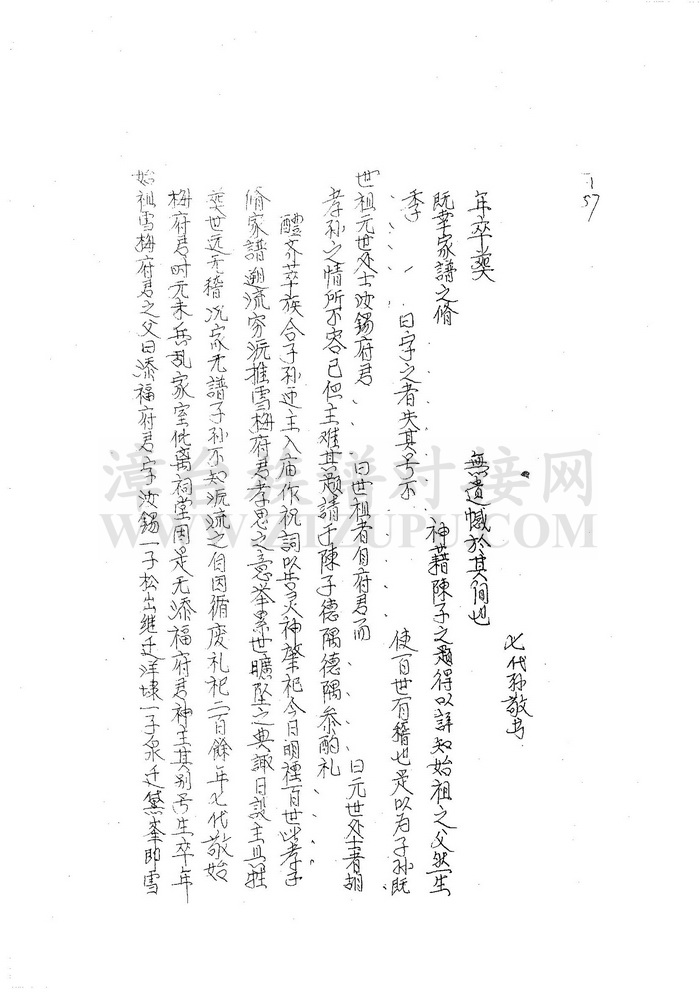 157
始祖雪梅府君之父曰添福府君字汝錫一子松出继迁洋埭一子泉迁黛峯即雪
梅府君时元末兵乱家室仳离祠堂因是无添福府君神主其别号生卒年
葬世远无稽况家无譜子孙不知派流之自因循废礼祀二百餘年七代敬始
脩家譜遡流穷源推雪梅府君孝思之意举累世曠坠之典諏日設主具牲
醴齐萃族合子孙迎主入庙作祝詞以告 神肇祀今日明禋百世 孝子
孝孙之情所不容已但主难其题請于陳子德隅德隅参酌礼
世祖元世处士汝錫府君 曰世祖者自府君而 曰元世处士者胡
季 曰字之者失其号不 使百世有稽也是以为子孙既
既幸家譜之脩 神藉陳子之题得以詳知始祖之父然生
年卒葬 無遺憾於其间也
七代孙敬书
漳台族譜对接网
WWW.ZTZUPU.COM